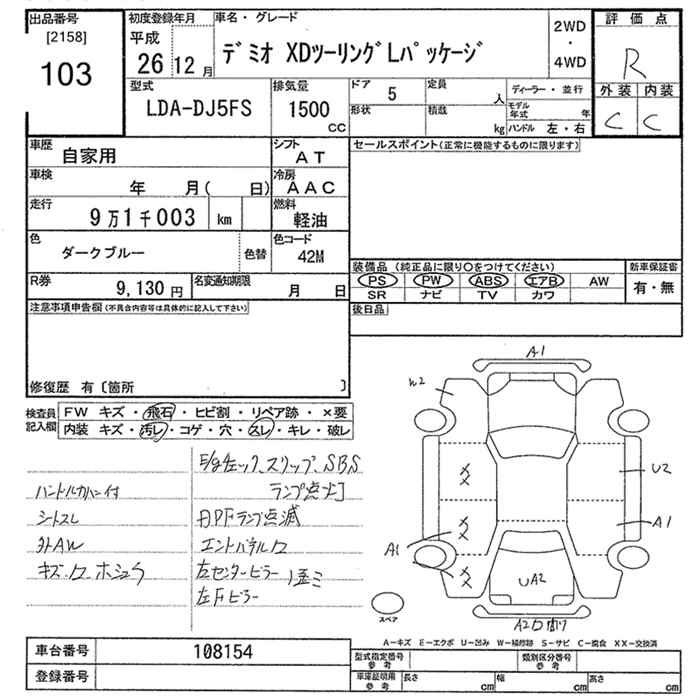 出品番号 初度登録年月 車名・グレード 2WD・4WD 評価点
[2158] 103 平成 26 12月 デミオ XDツーリングLパッケージ R
型式 排気量 ドア 定員 ディーラー・並行 外装 内装
LDA-DJ5FS 1500 CC 5 人 モデル年式 年 C C
形状 積載 kg ハンドル 左・右
車歴 自家用 シフト AT セールスポイント(正常に機能するものに限ります)
車検 年 月( 日) 冷房 AAC
走行 9万1千003 km 燃料 軽油
色 ダークブルー 色替 色コード 42M
装備品 (純正品に限り〇をつけてください) 新車保証書
PS PW ABS エアB AW 有・無
SR ナビ TV カワ
R券 9,130円 名変通知期限 月 日
注意事項申告欄(不具合内容等は具体的に記入して下さい) 後日品
修復歴 有〔箇所 〕
検査員記入欄 FW キズ・飛石・ヒビ割・リペア跡・×要
内装 キズ・汚レ・コゲ・穴・スレ・キレ・破レ
E/gチェック、スリップ、SBS
ハンドルカバー付 ランプ点灯
シートスレ DPFランプ点滅
外AW
キズ・
左センターピラー
左Fピラー
A1
W2
××
U2
××
A1
A1
××
UA2
A2
スペア
A-キズ E-エクボ U-凹み W-補修跡 S-サビ C-腐食 XX-交換済
車台番号 108154
登録番号
型式指定番号 参考 類別区分番号 参考
車庫証明用 参考 長さ cm 幅 cm 高さ cm